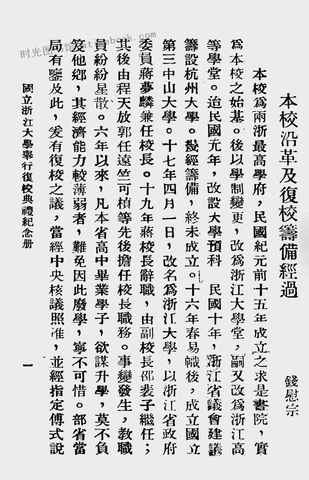 本校沿革及復校籌備經過
錢慰宗
本校爲兩浙最高學府，民國紀元前十五年成立之求是書院，實
爲本校之始基。後以學制變更，改爲浙江大學堂，嗣又改爲浙江高
等學堂。迨民國元年，改設大學預科 民國十年，浙江省議會建議
籌設杭州大學。幾經籌備，終未成立。十六年春易幟後，成立國立
第三中山大學。十七年四月一日，改名爲浙江大學，以浙江省政府
委員蔣夢麟兼任校長。十九年蔣校長辭職，由副校長邵裴子繼任；
其後由程天放郭任遠竺可楨等先後擔任校長職務。事變發生，教職
員紛紛星散。六年以來，凡本省高中畢業學子，欲謀升學，莫不負
笈他鄉，其經濟能力較薄弱者，難免因此廢學，寧不可惜。部省當
局有鑒及此，爰有復校之議，當經中央核議照准，並經指定傅式說
國立浙江大學舉行復校典禮紀念册
一